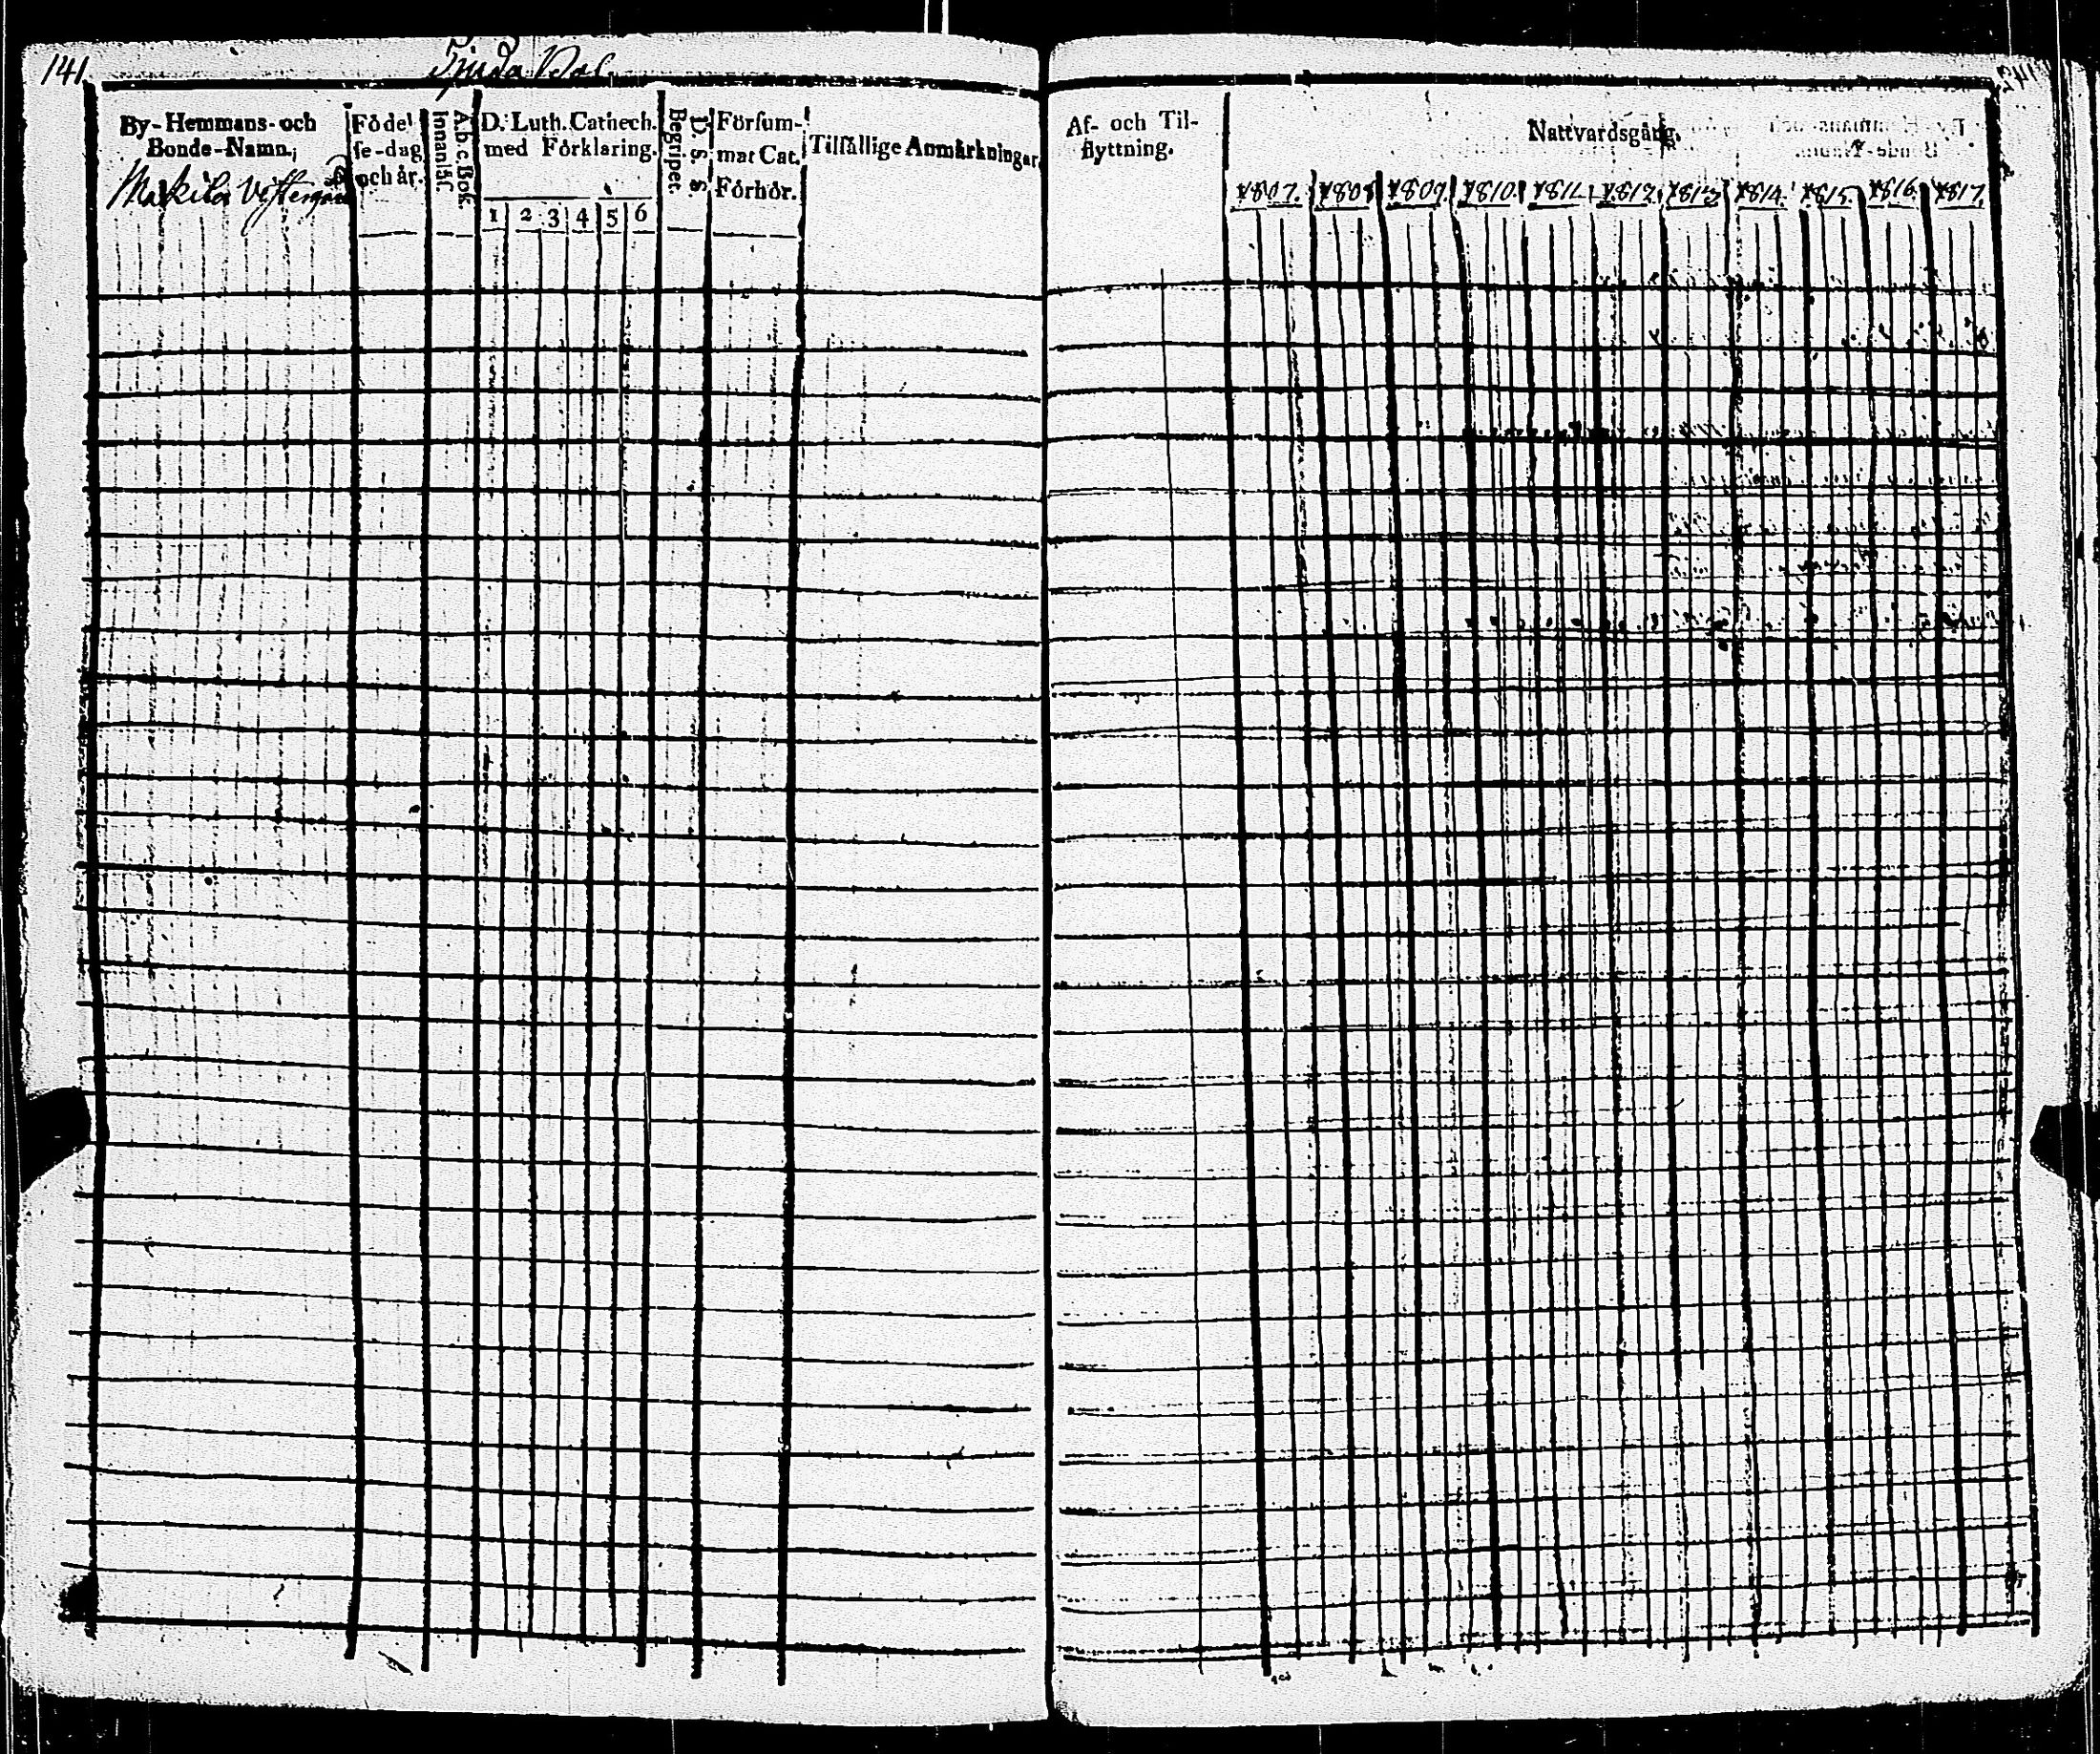 141.
By-Hemmans- och
Bonde-Namn.
Födel
se-dag
och år.
A.b.c. Bok.
Innanläf.
D. Luth. Cathech.
med Förklaring.
1 2 3 4 5 6
D. S. S.
Begripet.
Försum-
mat Cat.
Förhör.
Tilfällige Anmärkningar.
Makila
Af- och Til-
flyttning.
Nattvardsgång.
1807. 1808 1809 1810. 1811. 1812. 1813 1814. 1815. 1816. 1817.